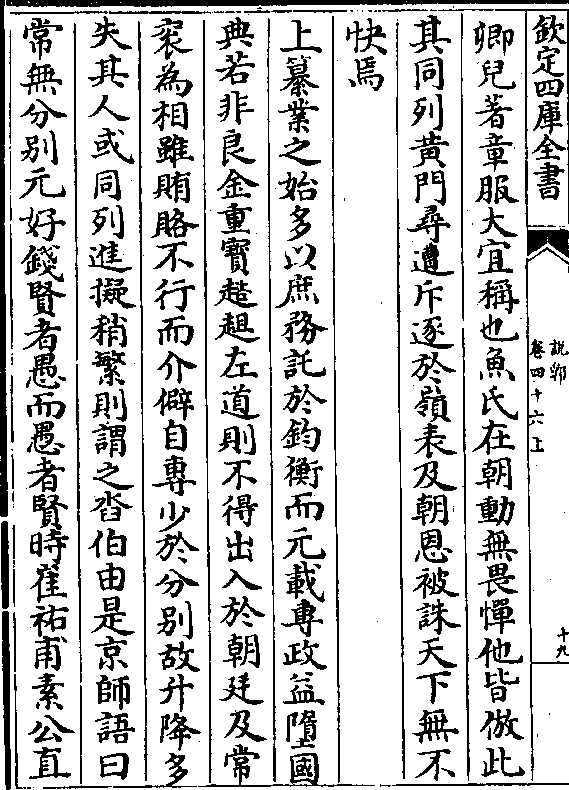 欽定四庫全書
說郛
卷四十六上
十九
卿兒著章服大宜稱也魚氏在朝動無畏憚他皆倣此
其同列黃門尋遭斥逐於嶺表及朝恩被誅天下無不
快焉
上纂業之始多以庶務託於鈞衡而元載專政益隳國
典若非良金重寳趑趄左道則不得出入於朝廷及常
衮為相雖賄賂不行而介僻自專少於分别故升降多
失其人或同列進擬稍繁則謂之沓伯由是京師語曰
常無分别元好錢賢者愚而愚者賢時崔祐甫素公直